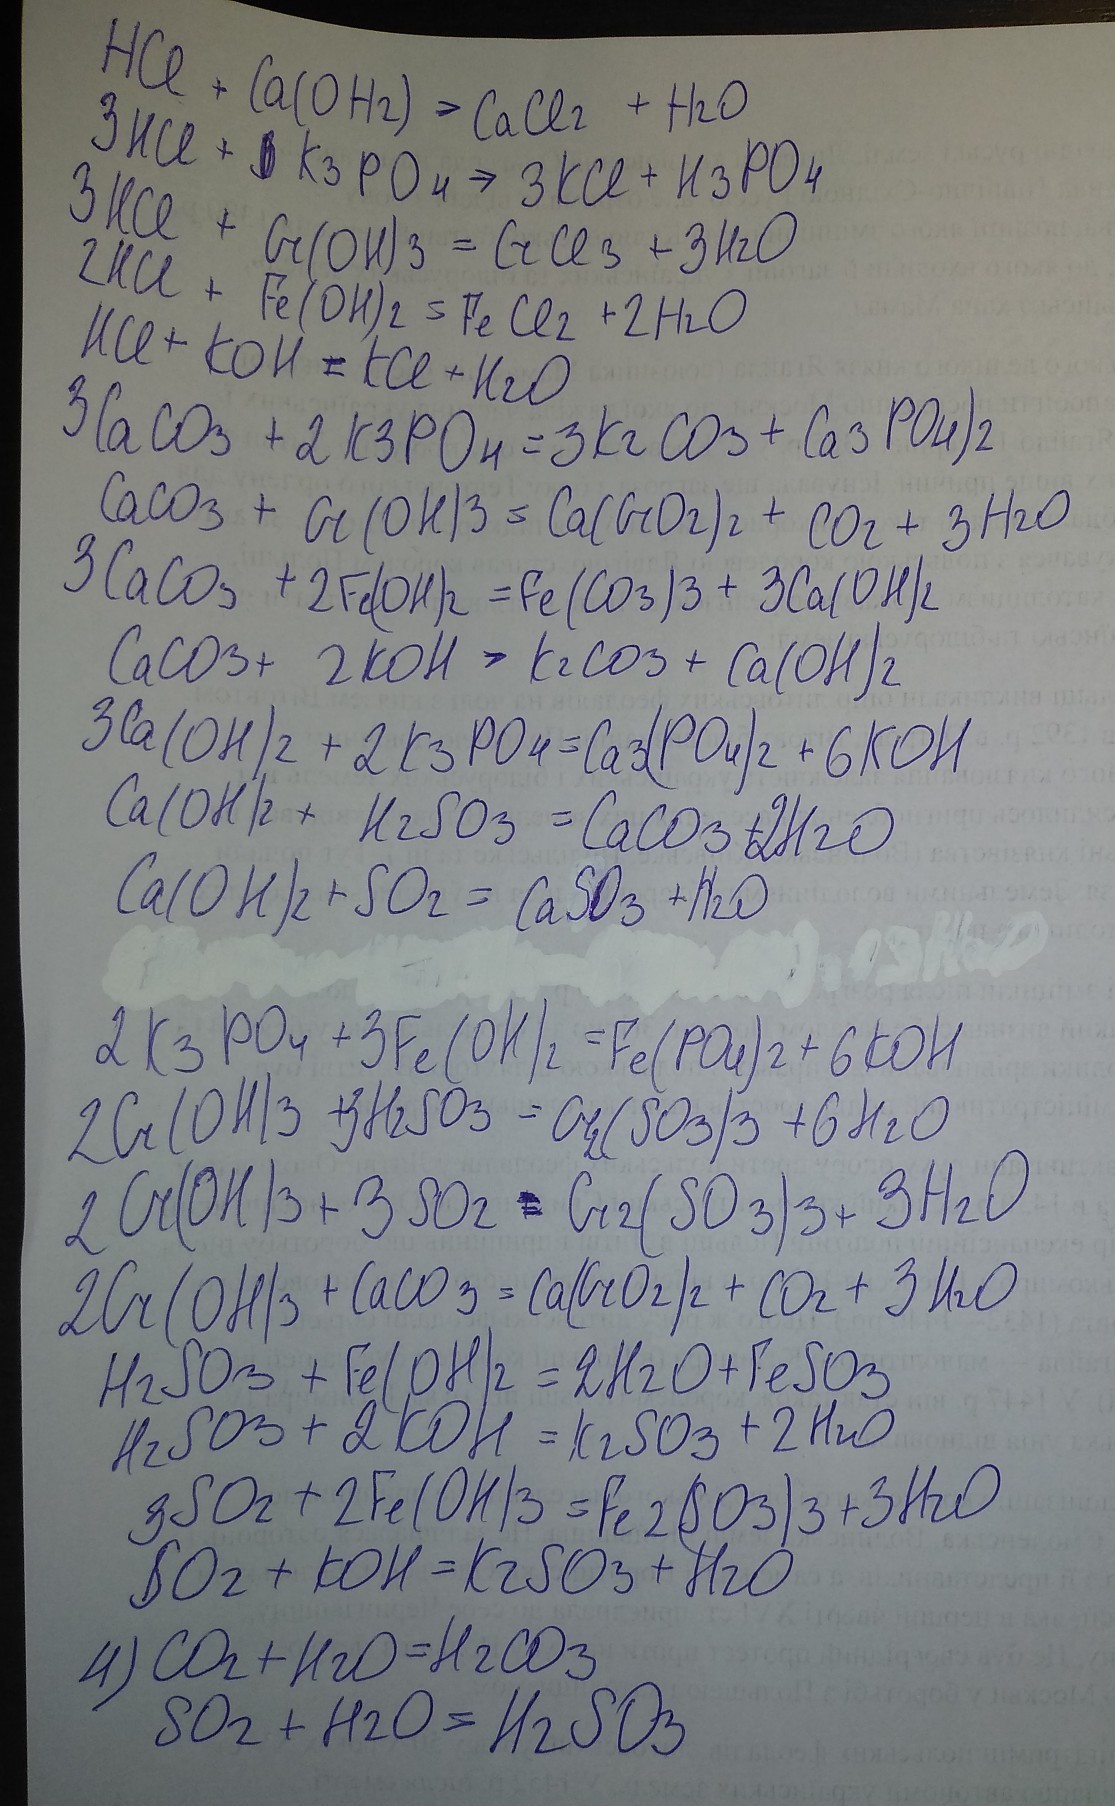 HCl + Ca(OH2) => CaCl2 + H2O
3HCl + K3PO4 → 3KCl + H3PO4
3HCl + Cr(OH)3 = CrCl3 + 3H2O
2HCl + Fe(OH)2 = FeCl2 + 2H2O
HCl + KOH = KCl + H2O
3CaCO3 + 2K3PO4 = 3K2CO3 + Ca3PO4)2
CaCO3 + Cr(OH)3 = Ca(CrO2)2 + CO2 + 3H2O
3CaCO3 + 2Fe(OH)2 = Fe(CO3)3 + 3Ca(OH)2
CaCO3 + 2KOH => K2CO3 + Ca(OH)2
3Ca(OH)2 + 2K3PO4 = Ca3(PO4)2 + 6KOH
Ca(OH)2 + H2SO3 = CaCO3 + 2H2O
Ca(OH)2 + SO2 = CaSO3 + H2O
2K3PO4 + 3Fe(OH)2 = Fe(PO4)2 + 6KOH
2Cr(OH)3 + 3H2SO3 = Cr2(SO3)3 + 6H2O
2Cr(OH)3 + 3SO2 = Cr2(SO3)3 + 3H2O
2Cr(OH)3 + CaCO3 = Ca(CrO2)2 + CO2 + 3H2O
H2SO3 + Fe(OH)2 = 2H2O + FeSO3
H2SO3 + 2KOH = K2SO3 + 2H2O
3SO2 + 2Fe(OH)3 = Fe2(SO3)3 + 3H2O
SO2 + KOH = K2SO3 + H2O
4) CO2 + H2O = H2CO3
SO2 + H2O = H2SO3